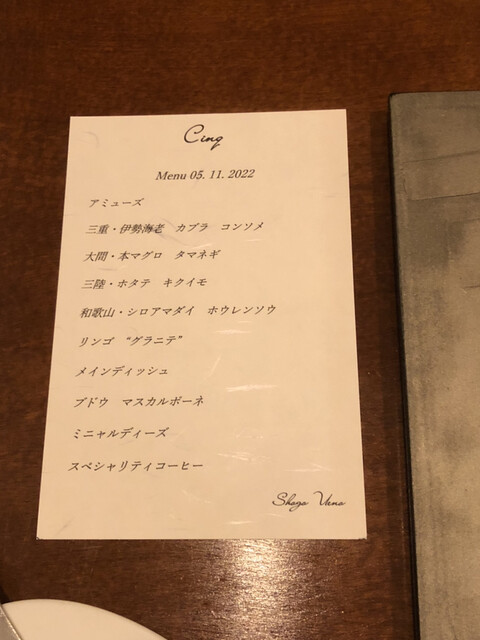 Cinq
Menu 05. 11. 2022
アミューズ
三重・伊勢海老　カブラ　コンソメ
大間・本マグロ　タマネギ
三陸・ホタテ　キクイモ
和歌山・シロアマダイ　ホウレンソウ
リンゴ　“グラニテ”
メインディッシュ
ブドウ　マスカルポーネ
ミニャルディーズ
スペシャリティコーヒー
Shogo Ueno